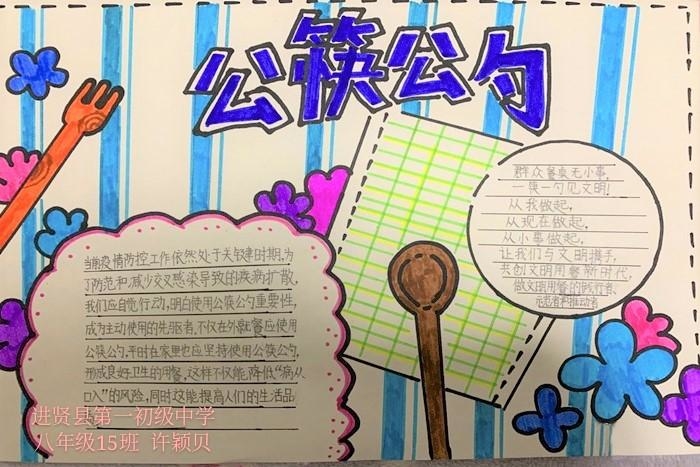 公筷公勺
群众餐桌无小事,
一筷一勺见文明!
从我做起,
从现在做起,
从小事做起,
让我们与文明携手,
共创文明用餐新时代,
做文明用餐的践行者、
示范者和推动者
当前疫情防控工作依然处于关键时期,为
了防范和减少交叉感染导致的疾病扩散,
我们应自觉行动,明白使用公筷公勺重要性,
成为主动使用的先驱者,不仅在外就餐应使用
公筷公勺,平时在家里也应坚持使用公筷公勺,
形成良好卫生的用餐,这样不仅能降低“病从
口入”的风险,同时这能提高人们的生活品
进贤县第一初级中学
八年级15班 许颖贝